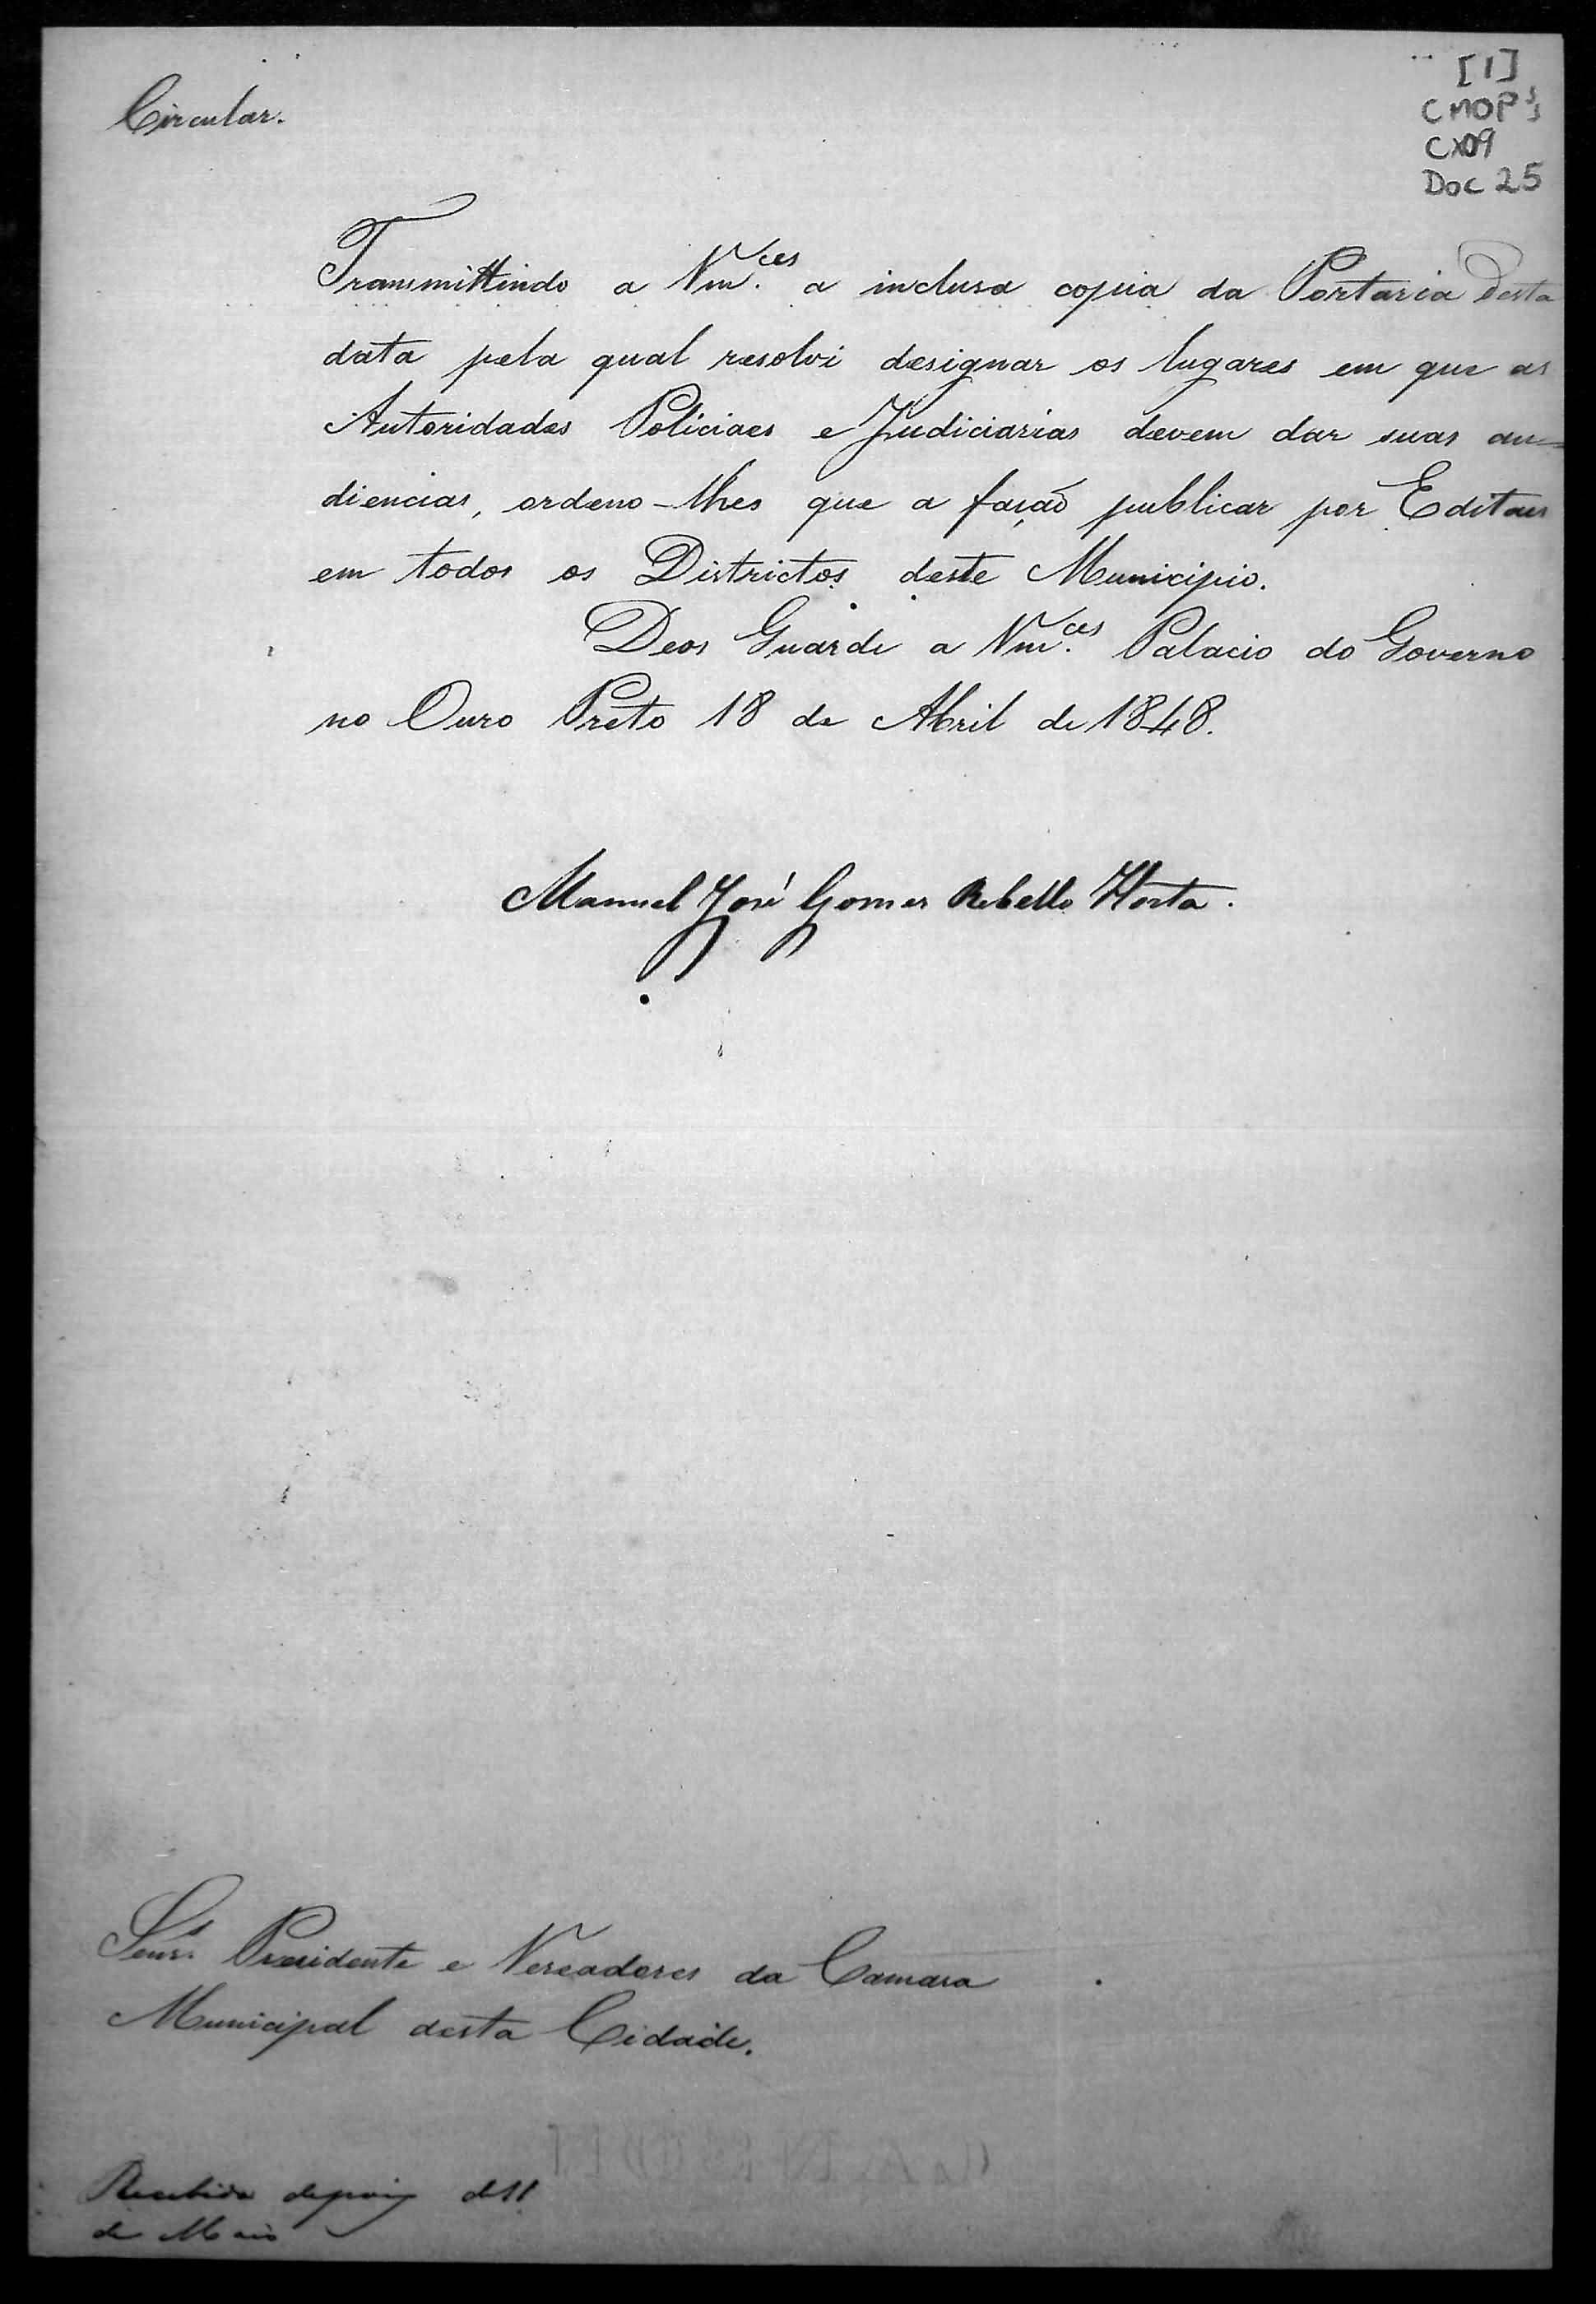 [1]
CMOP 3
CX09
Doc 25
Circular.
Transmittindo a Vm.ces a inclusa copia da Portaria desta
data pela qual resolvi designar os lugares em que as
Autoridades Policiaes e Judiciarias devem dar suas au=
diencias, ordeno-lhes que a fação publicar por Editaes
em todos os Districtos deste Municipio.
Deos Guarde a Vm.ces Palacio do Governo
no Ouro Preto 18 de Abril de 1848.
Manuel José Gomes Rebello Horta.
Senr.s Presidente e Vereadores da Camara
Municipal desta Cidade.
Recebida depois de 11
de Maio